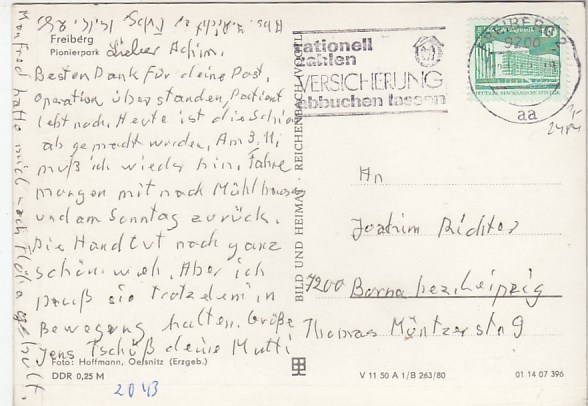 Freiberg
Pionierpark
Lieber Achim.
Besten Dank für deine Post,
operation überstanden, Patient
lebt noch. Heute ist die Schien
ab gemacht worden. Am 3.11.
muß ich wieder hin. Fahre
morgen mit nach Mühlhausen
und am Sonntag zurück.
Die Hand tut noch ganz
schön weh. Aber ich
muß sie trotzdem in
Bewegung halten. Grüße
Jens Tschüß deine Mutti
Manfred hatte mich nach Flöha geholt.
Foto: Hoffmann, Oelsnitz (Erzgeb.)
DDR 0,25 M
2043
BILD UND HEIMAT REICHENBACH (VOGTL)
rationell
zahlen
VERSICHERUNG
abbuchen lassen
FREIBERG 2
9200
aa
10
An
Joachim Richter
7200 Borna bez. Leipzig
Thomas Müntzerstr 9
V 11 50 A 1/B 263/80
01 14 07 396